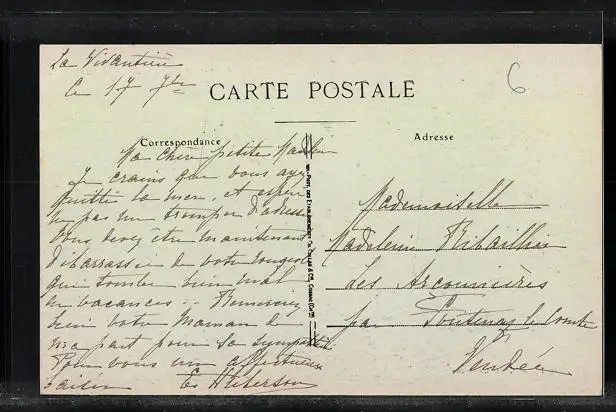 La Vivantière
le 17 7bre
CARTE POSTALE
6
Correspondance
Adresse
Ma chère petite Madelein
Je crains que vous ayez
quitté la mer, et espère
ne pas me tromper d'adresse
Vous devez être maintenant
débarrassée de votre
qui tombe bien mal
en vacances... Remerciez
bien votre Maman de
ma part pour sa sympathie
Pour vous un affectueux
baiser
Mademoiselle
Madeleine
Les
par Fontenay le Comte
Vendée